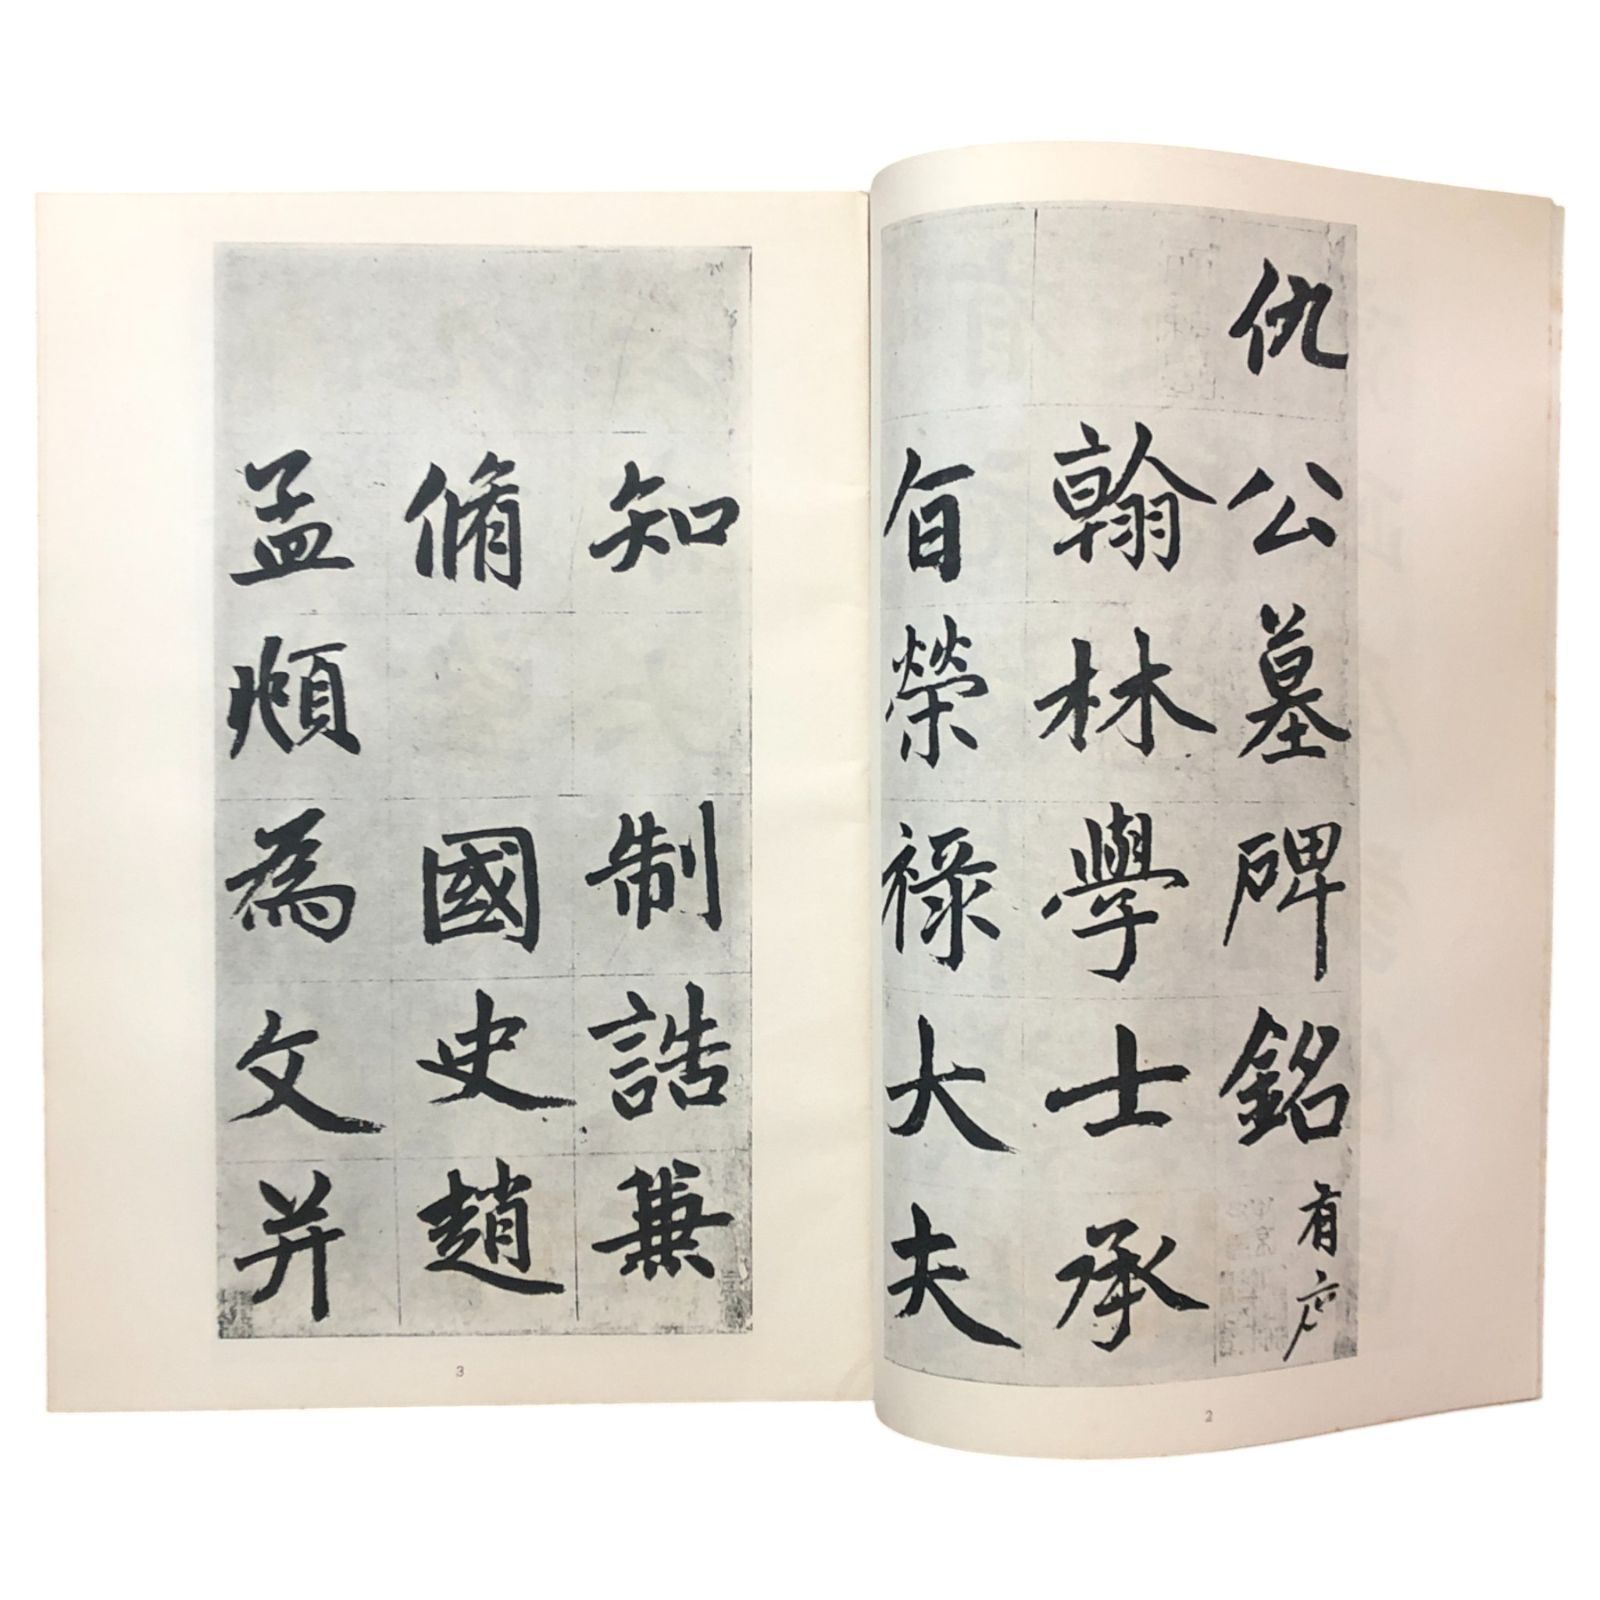 仇公墓碑銘有序
翰林學士承
旨榮祿大夫
2
知 制誥兼
脩 國史趙
孟頫為文并
3